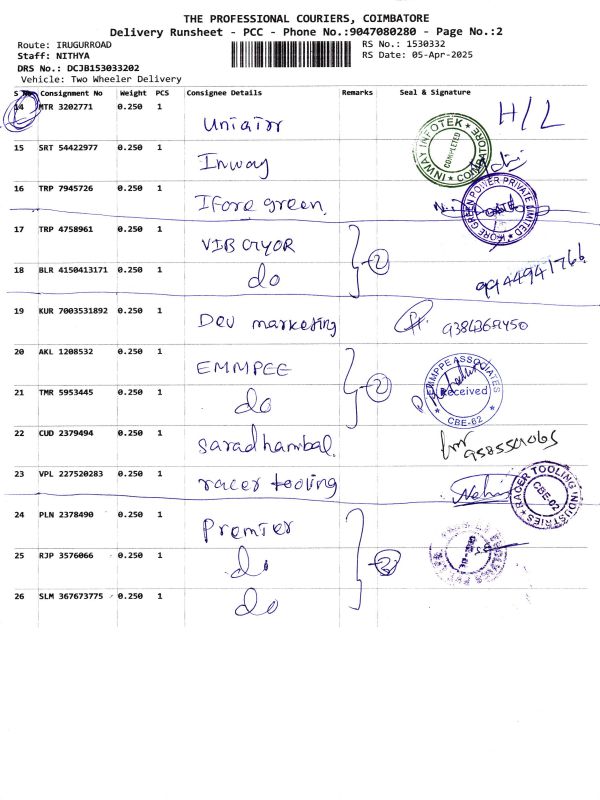 THE PROFESSIONAL COURIERS, COIMBATORE
Delivery Runsheet - PCC - Phone No.:9047080280 - Page No.:2
Route: IRUGURROAD RS No.: 1530332
Staff: NITHYA RS Date: 05-Apr-2025
DRS No.: DCJB153033202
Vehicle: Two Wheeler Delivery
S No Consignment No Weight PCS Consignee Details Remarks Seal & Signature
14 MTR 3202771 0.250 1 Uniqirr H/L
15 SRT 54422977 0.250 1 Inway INWAY INFOTEK COMPLETED
16 TRP 7945726 0.250 1 Ifore green KORE GREEN POWER PRIVATE LIMITED
17 TRP 4758961 0.250 1 VIB CryOR
18 BLR 4150413171 0.250 1 do 2 9944941766
19 KUR 7003531892 0.250 1 Dev marketing
20 AKL 1208532 0.250 1 EMMPEE 2
21 TMR 5953445 0.250 1 do EMMPPE ASSOCIATES Received CBE-62
22 CUD 2379494 0.250 1 saradhambal
23 VPL 227520283 0.250 1 racer tooling RACER TOOLING INDUSTRIES CBE-02
24 PLN 2378490 0.250 1 Premier
25 RJP 3576066 0.250 1 do 3
26 SLM 367673775 0.250 1 do